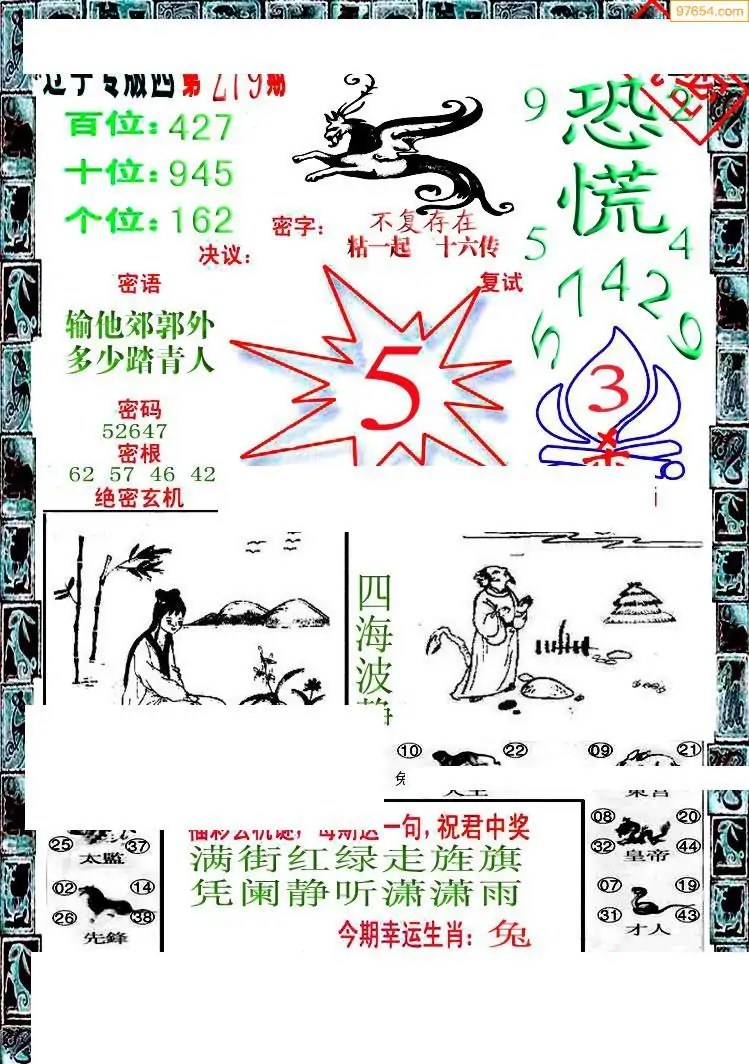 97654.com
辽宁专版四 第 279 期
百位：427
十位：945
个位：162
9 恐慌 2
5 4
密字： 不复存在
粘一起 十六传
决议：
复试
密语
输他郊郭外
多少踏青人
5
57429
3
杀
密码
52647
密根
62 57 46 42
绝密玄机
四海波静
10 22
09 21
兔
08 20
32 44
皇帝
07 19
31 43
才人
25 37
太監
02 14
26 38
先鋒
福彩玄机谜，每期送一句，祝君中奖
满街红绿走旌旗
凭阑静听潇潇雨
今期幸运生肖：兔